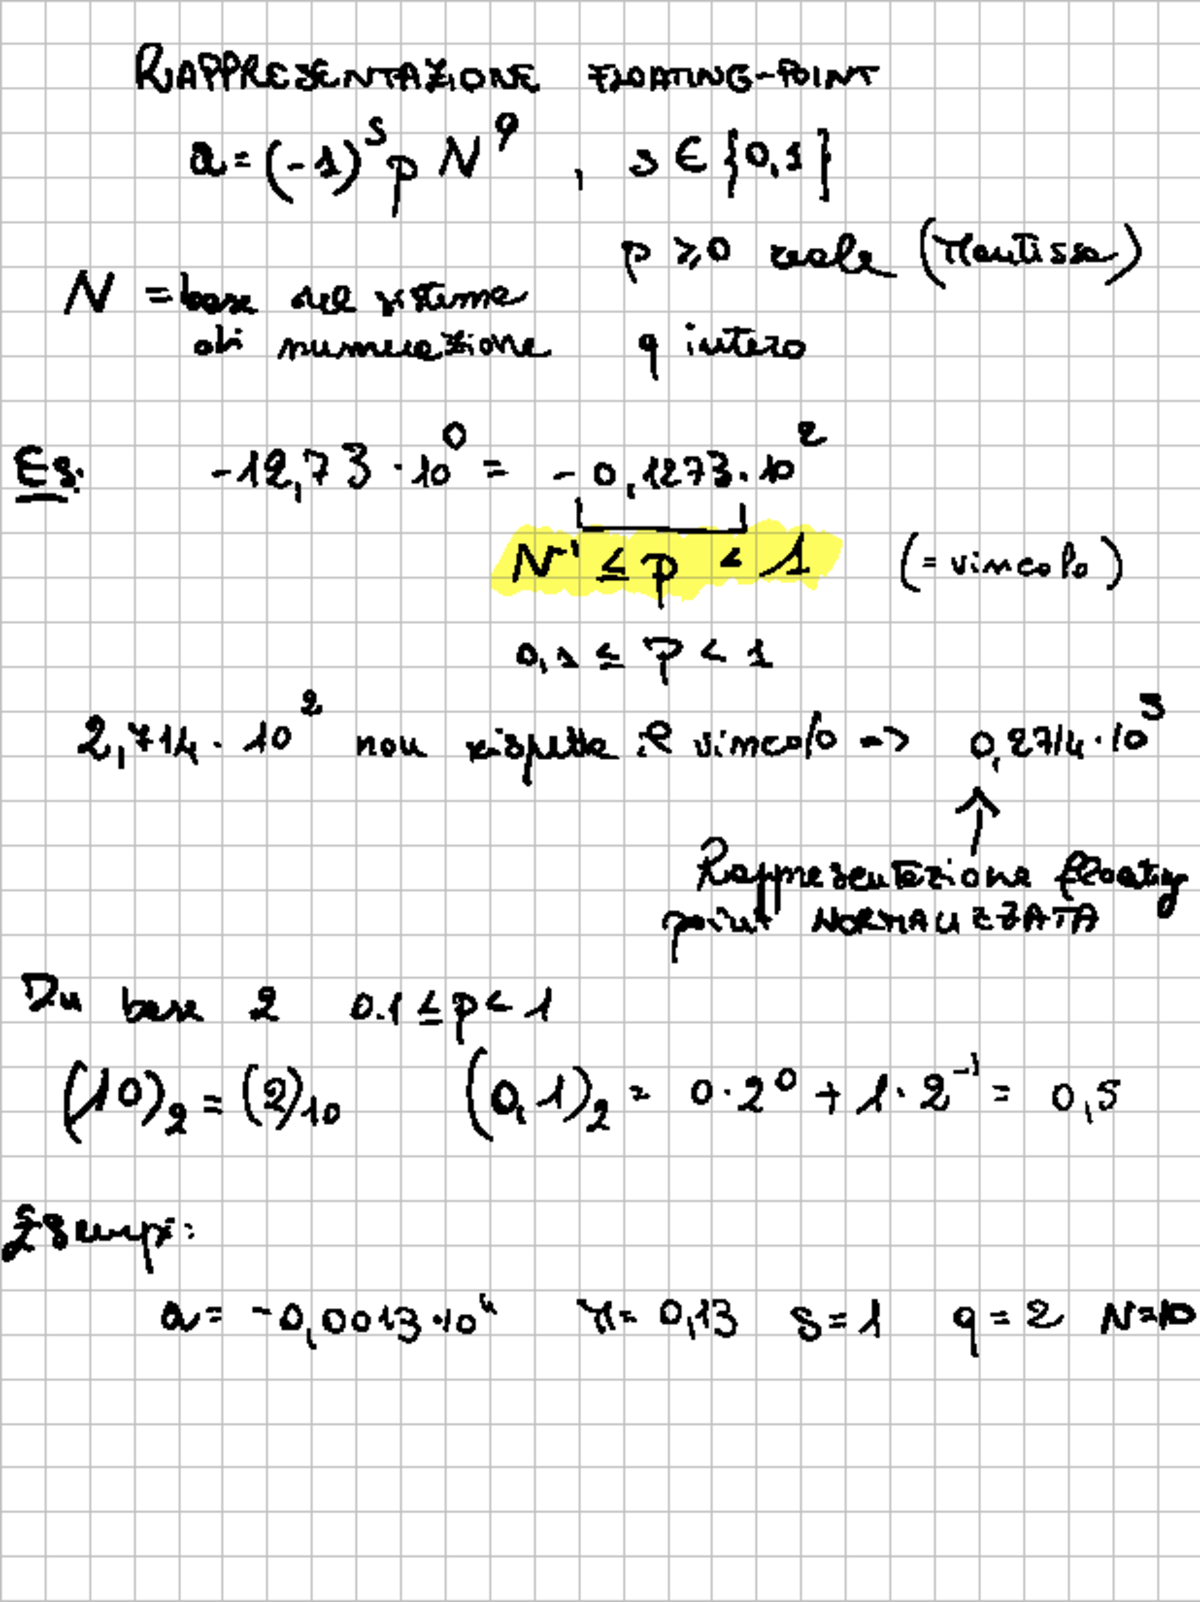 RAPPRESENTAZIONE FLOATING-POINT
a = (-1)^s p N^q , s ∈ {0,1}
p ⩾ 0 reale (Mantissa)
N = base del sistema
di numerazione q intero
Es. -12,73 · 10^0 = -0,1273 · 10^2
N^-1 ≤ p < 1 (= vincolo)
0,1 ≤ p < 1
2,714 · 10^2 non rispetta il vincolo => 0,2714 · 10^3
↑
Rappresentazione floating
point NORMALIZZATA
In base 2 0.1 ≤ p < 1
(10)_2 = (2)_10 (0,1)_2 = 0·2^0 + 1·2^-1 = 0,5
Esempi:
a = -0,0013·10^4 = 0,13 s = 1 q = 2 N=10